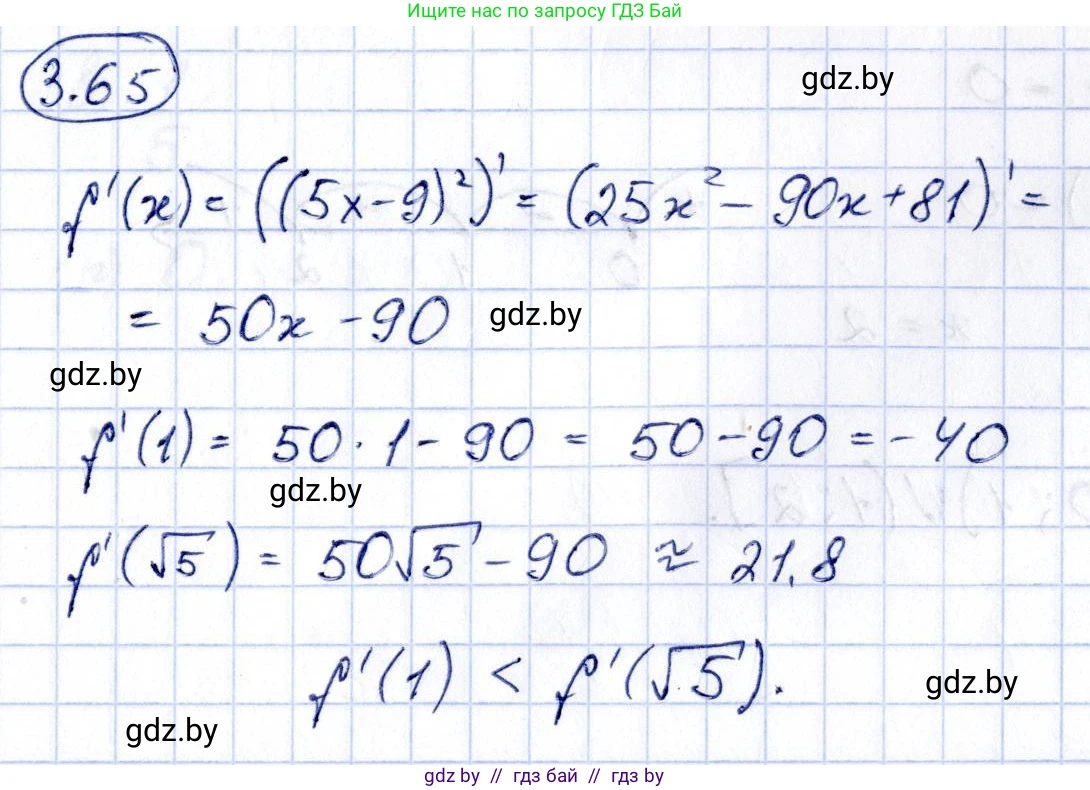 Ищите нас по запросу ГДЗ Бай
3.65
gdz.by
f'(x) = ((5x-9)²)' = (25x² - 90x + 81)' =
= 50x - 90
gdz.by
gdz.by
f'(1) = 50 · 1 - 90 = 50 - 90 = - 40
gdz.by
f'(√5) = 50√5 - 90 ≈ 21,8
f'(1) < f'(√5).
gdz.by
gdz.by
gdz.by // гдз бай // гдз by